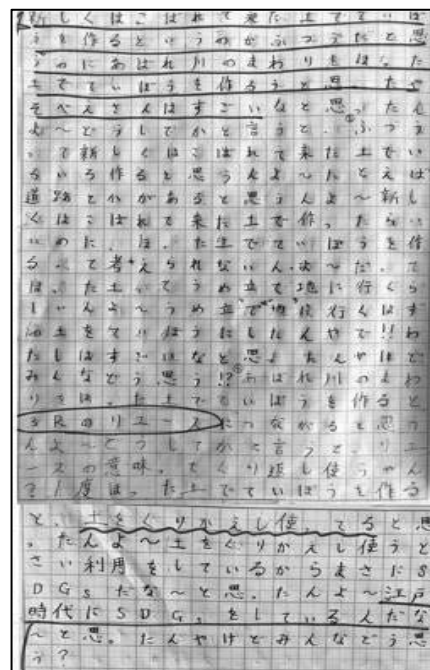 新しくはこばれて来た土でていぼ
うを作るというみがふつうだと思
うのにあばれ川のまわりをほった
土でていぼうを作ろうと思ったや
そべえさんはすごいなと思ったん
よ〜どうしてかと言うと、ふつう
って新しくはこばれて来た土でい
ろいろ作ると思うんよ〜たとえば
道路とかがあると思うんよ〜新し
くはこばれて来た土で作ったらい
いのに、ほった土でていぼうを作
るって考えられないんよ〜だって
ほった土ってうめ立て地に行くら
しいんよ〜うめ立て地に行くはず
の土をていぼうにしたんやで!!わ
たしはすごいなと思ったんやけど
みんなどう思う!?あばれ川のまわ
りをほった土でていぼうを作ると
3Rのリユースにつながると思う
んよ〜どうしてかと言うと、リユ
ースの意味ってくり返し使うやん
?1度ほった土でていぼうを作る
と、土をくりかえし使ってると思
ったんよ〜土をくりかえし使うと
さい利用をしているからまさにS
DGsだな〜と思ったんよ〜江戸
時代にSDGsをしているんだな
〜と思ったんやけどみんなどう思
う?